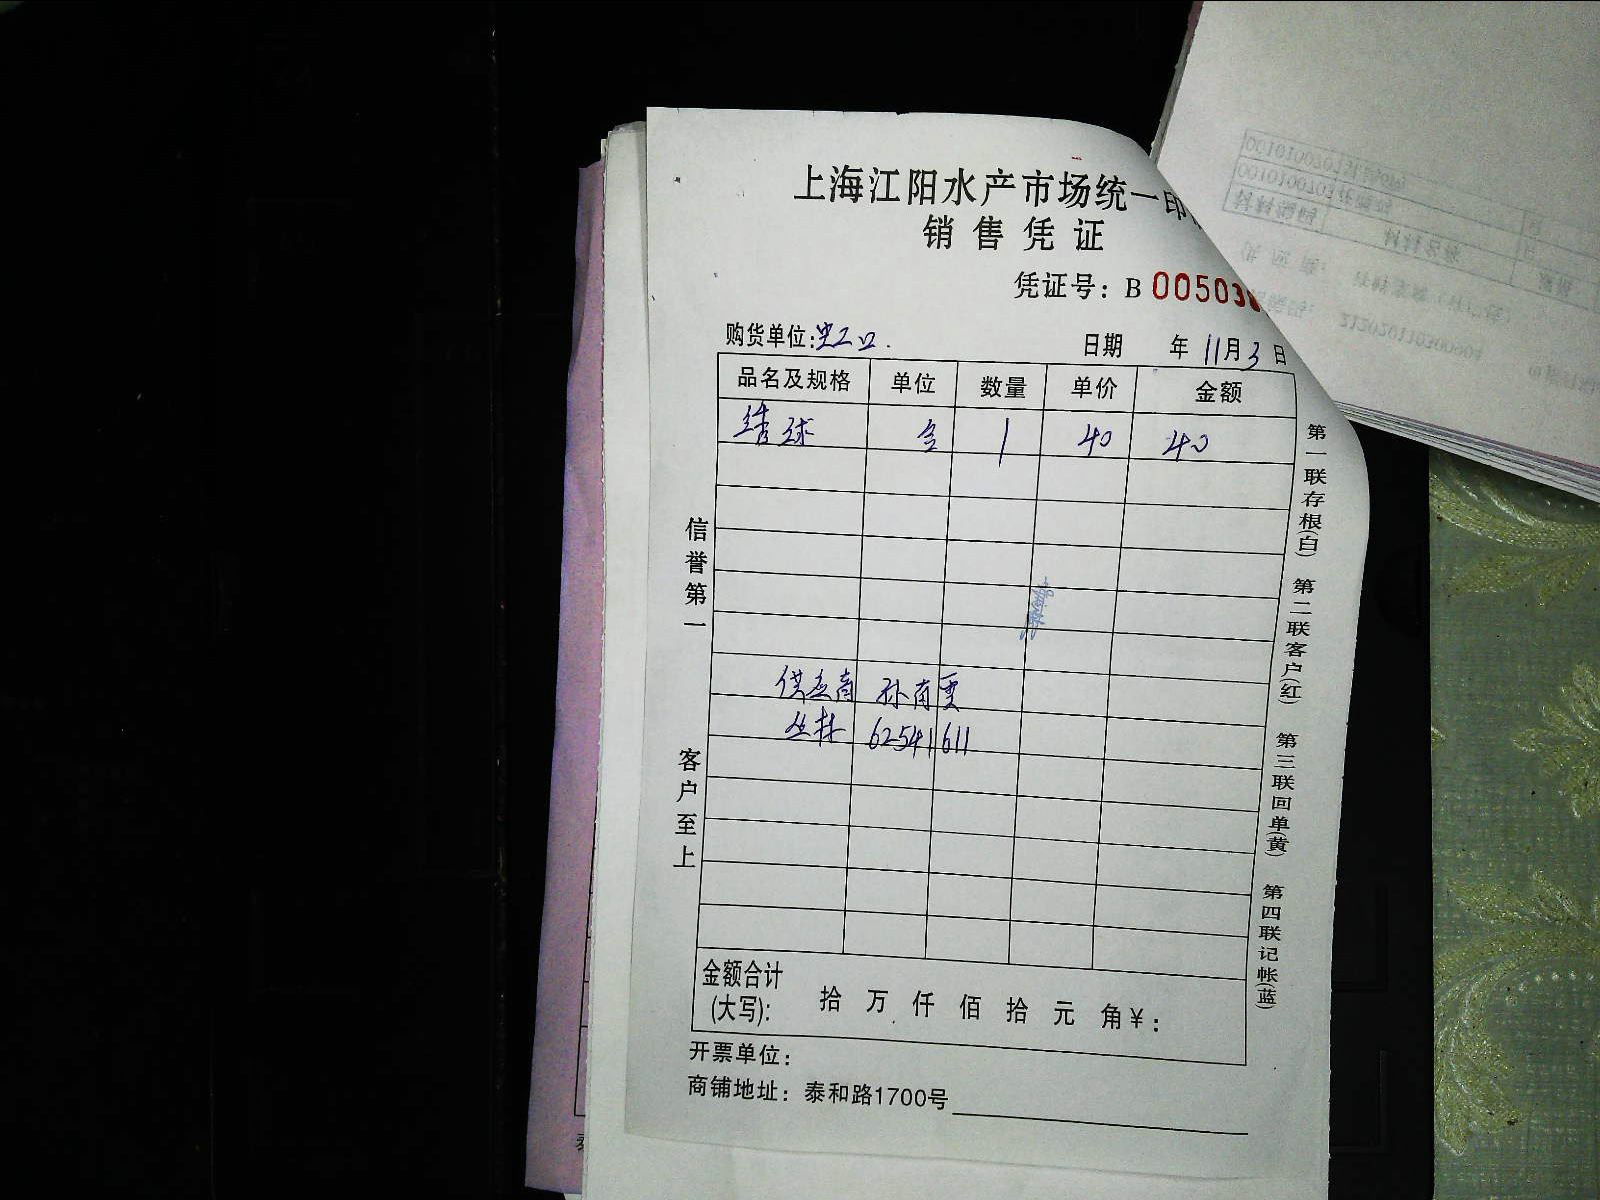 上海江阳水产市场统一印
销售凭证
凭证号: B 00503
购货单位: 虹口. 日期 年 11月 3 日
品名及规格 单位 数量 单价 金额
洁球 合 1 40 40
供应商 孙南雲
丛林 62541611
金额合计(大写): 拾 万 仟 佰 拾 元 角 ¥:
开票单位:
商铺地址: 泰和路1700号
信誉第一
客户至上
第一联存根(白) 第二联客户(红) 第三联回单(黄) 第四联记帐(蓝)